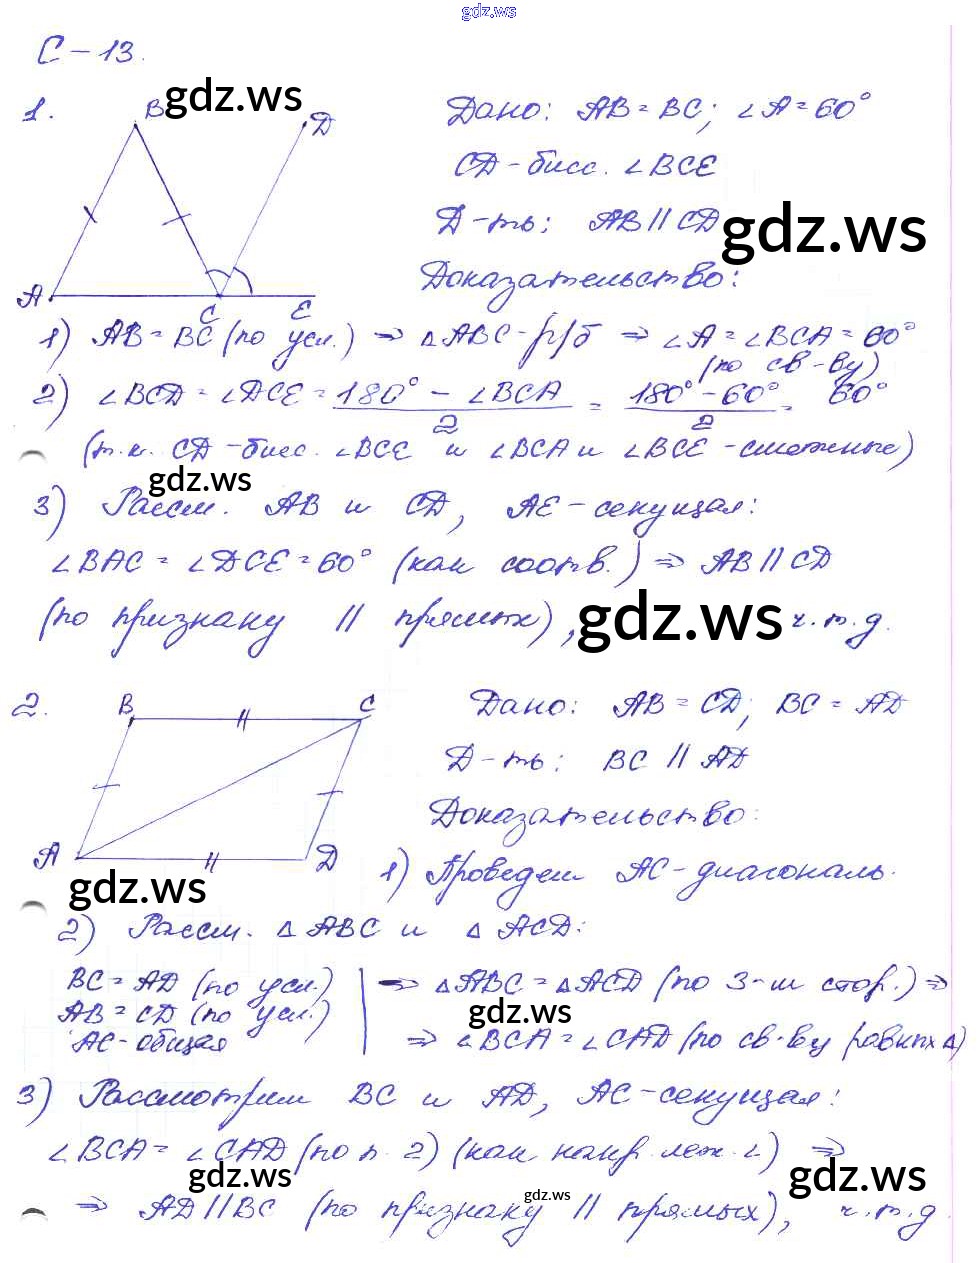 gdz.ws
С-13.
1.
B gdz.ws D
Дано: AB = BC; ∠A = 60°
CD - бисс. ∠BCE
Д-ть: AB || CD gdz.ws
Доказательство:
A C E
1) AB = BC (по усл.) ⇒ △ABC - р/б ⇒ ∠A = ∠BCA = 60°
(по св-ву)
2) ∠BCD = ∠DCE = (180° - ∠BCA)/2 = (180° - 60°)/2 = 60°
(т.к. CD - бисс. ∠BCE и ∠BCA и ∠BCE - смежные)
gdz.ws
3) Рассм. AB и CD, AE - секущая:
∠BAC = ∠DCE = 60° (как соотв.) ⇒ AB || CD
(по признаку || прямых), gdz.ws ч.т.д.
2.
B C
Дано: AB = CD; BC = AD
Д-ть: BC || AD
Доказательство:
A D
gdz.ws
1) Проведем AC - диагональ.
2) Рассм. △ABC и △ACD:
BC = AD (по усл.)
AB = CD (по усл.)
AC - общая
⇒ △ABC = △ACD (по 3-м стор.) ⇒
gdz.ws
⇒ ∠BCA = ∠CAD (по св-ву равных △)
3) Рассмотрим BC и AD, AC - секущая:
∠BCA = ∠CAD (по п. 2) (как накр. леж. ∠) ⇒
gdz.ws gdz.ws
⇒ AD || BC (по признаку || прямых), ч.т.д.
gdz.ws